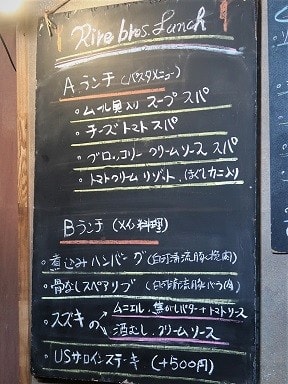 Riva bros. Lunch
A. ランチ (パスタメニュー)
・ムール貝入り スープ スパ
・チーズトマト スパ
・ブロッコリー クリームソース スパ
・トマトクリーム リゾット、ほぐしカニ入り
Bランチ (メイン料理)
・煮込みハンバーグ(白河清流豚挽肉)
・骨なしスペアリブ (白河清流豚バラ肉)
・スズキの ムニエル、焦がしバター+トマトソース
酒むし、クリームソース
・USサロインステーキ (+500円)